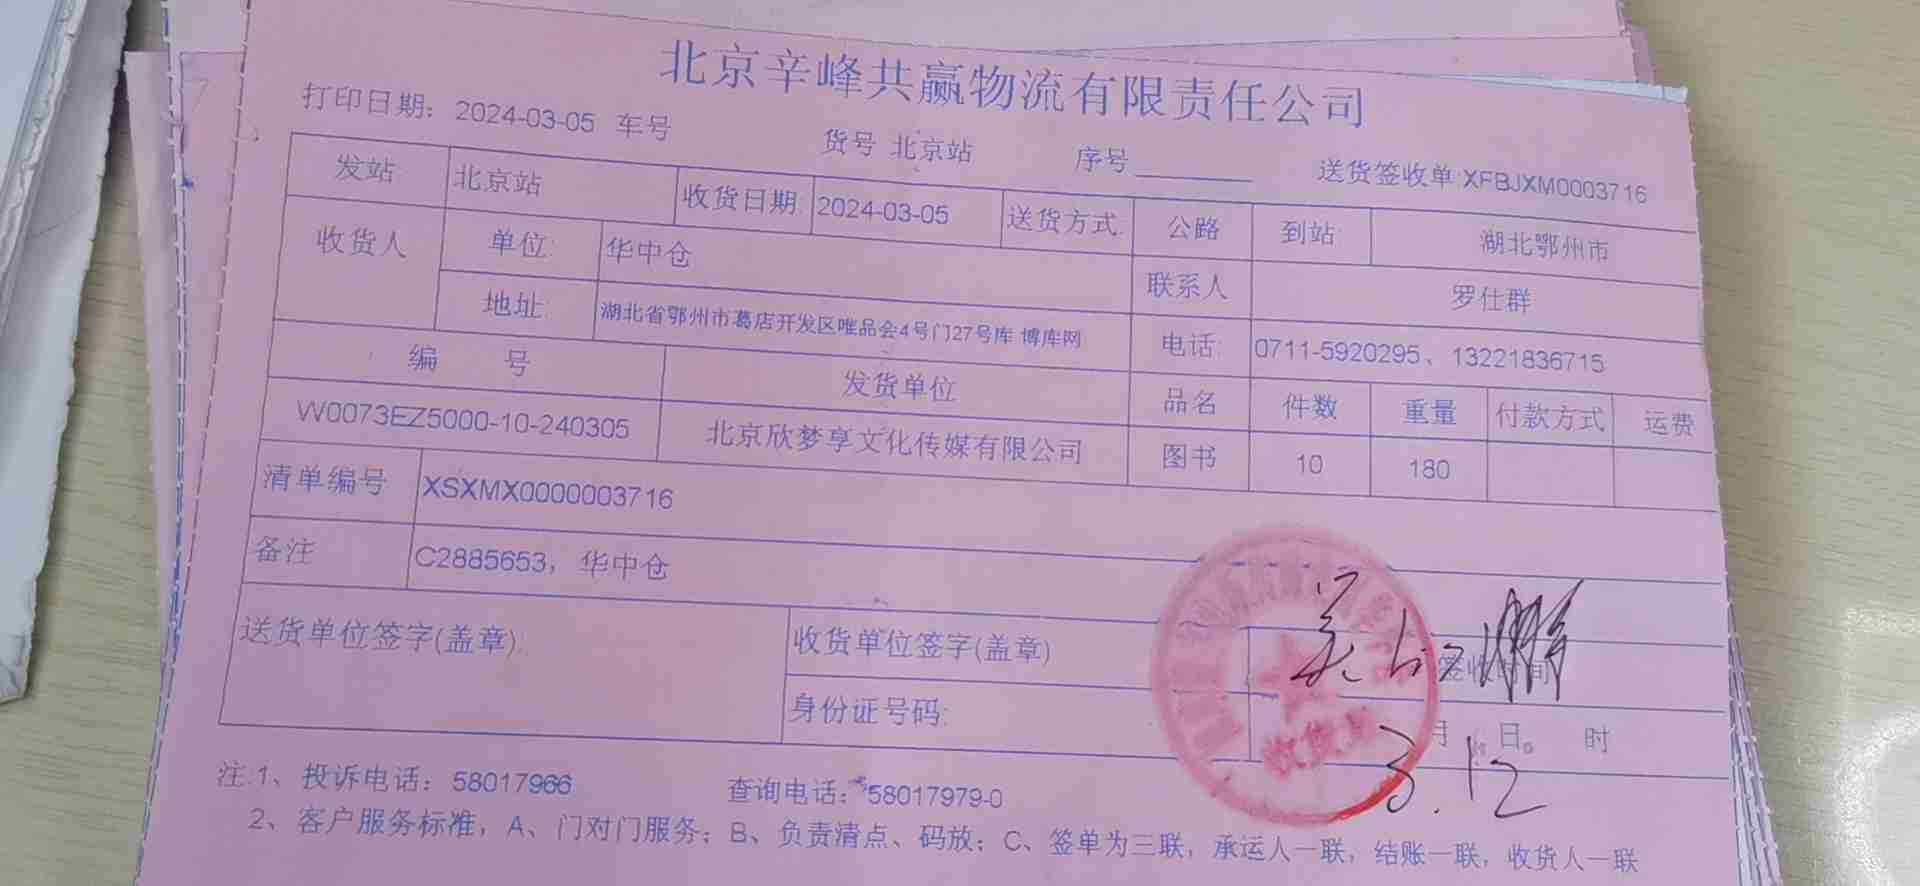 北京辛峰共赢物流有限责任公司
打印日期：2024-03-05 车号 货号 北京站 序号 送货签收单:XFBJXM0003716
发站 北京站 收货日期: 2024-03-05 送货方式: 公路 到站: 湖北鄂州市
收货人 单位: 华中仓 联系人 罗仕群
地址: 湖北省鄂州市葛店开发区唯品会4号门27号库 博库网 电话: 0711-5920295、13221836715
编 号 发货单位 品名 件数 重量 付款方式 运费
W0073EZ5000-10-240305 北京欣梦享文化传媒有限公司 图书 10 180
清单编号 XSXMX0000003716
备注 C2885653，华中仓
送货单位签字(盖章): 收货单位签字(盖章) 签收时间
身份证号码: 月 日 时
收货
3.12
注:1、投诉电话：58017966 查询电话：58017979-0
2、客户服务标准，A、门对门服务；B、负责清点、码放；C、签单为三联，承运人一联，结账一联，收货人一联